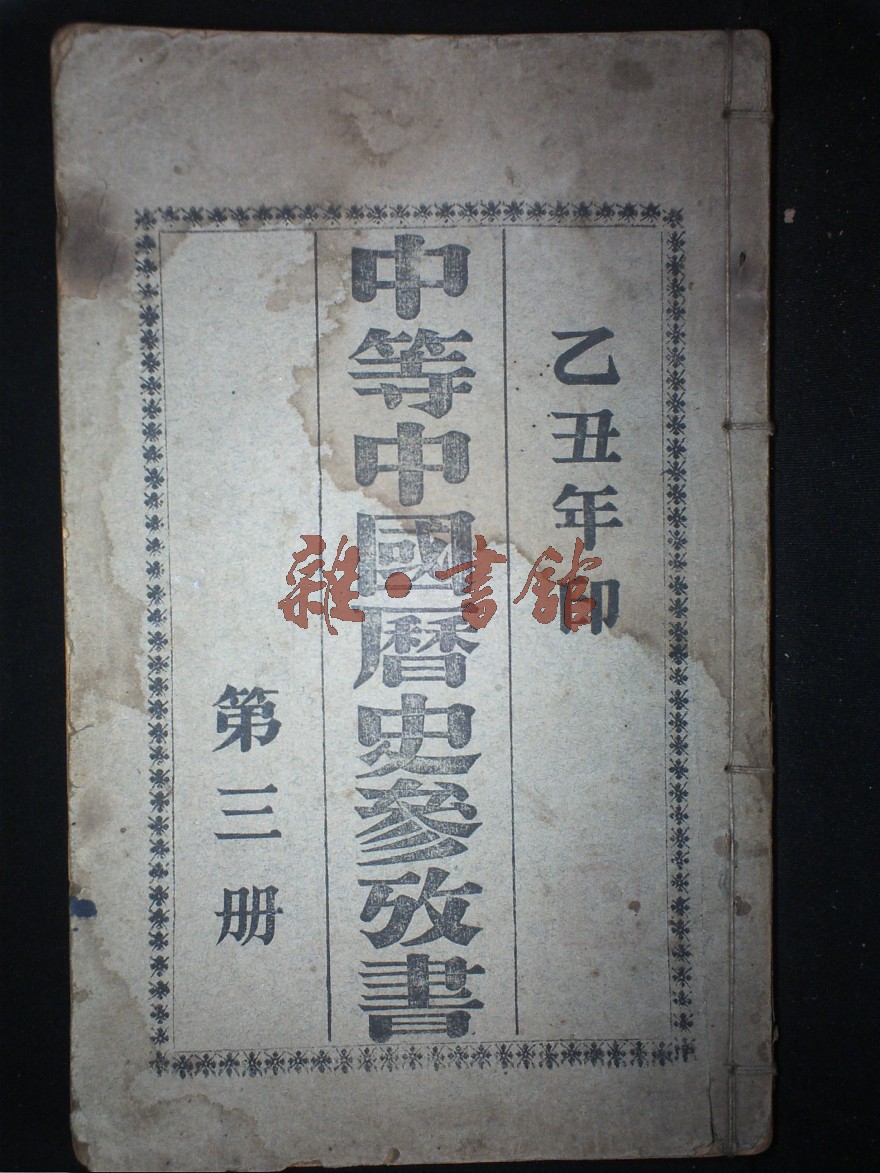 乙丑年印
中等中國曆史參攷書
第三册
雜·書館